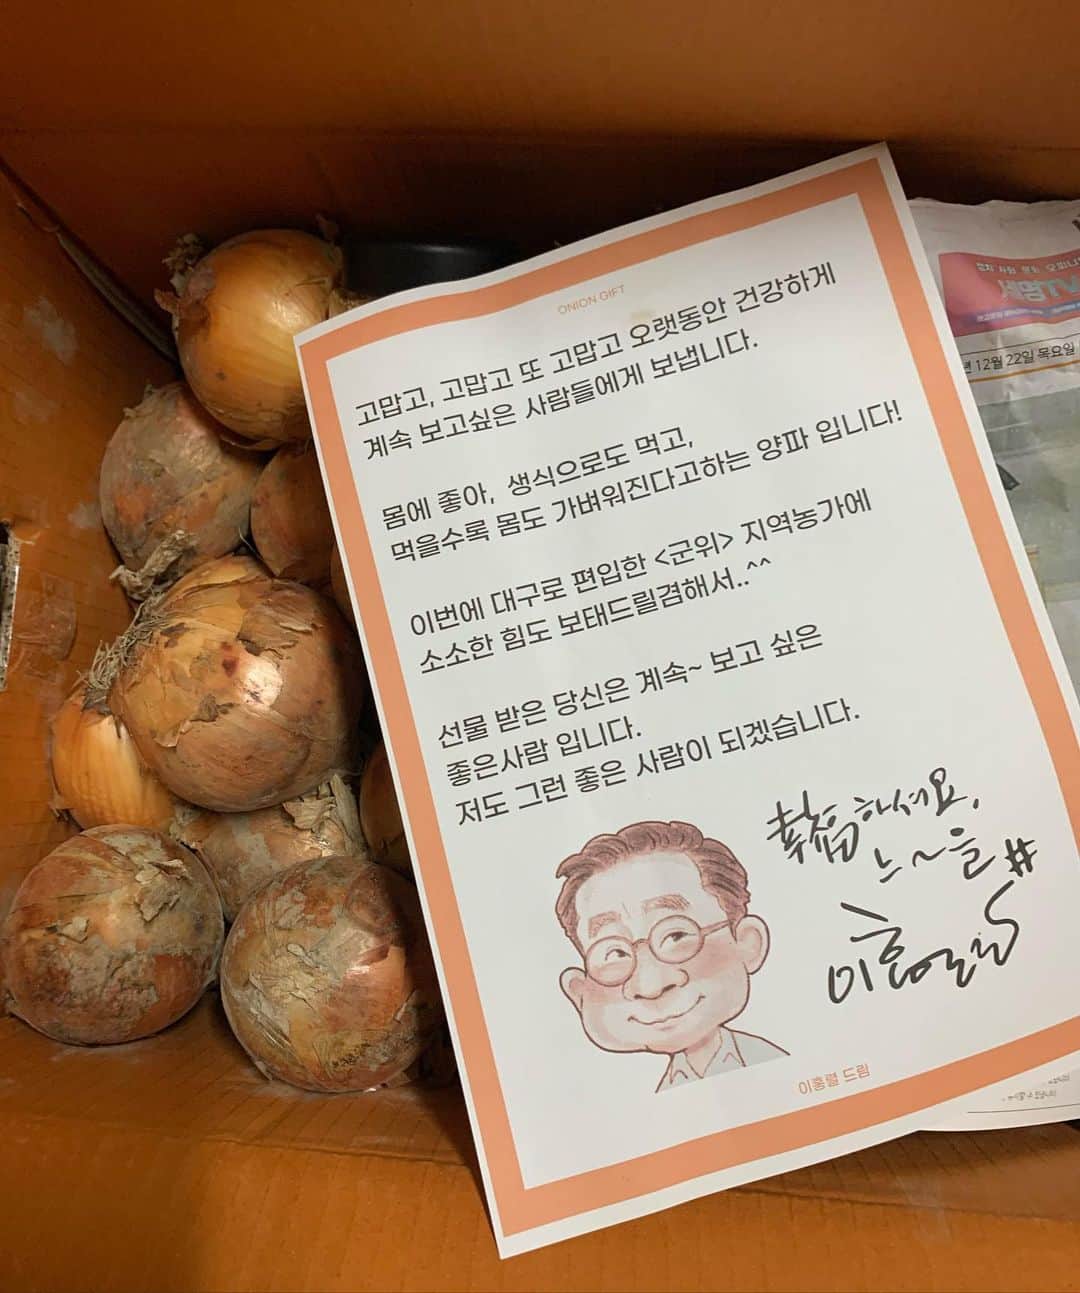 ONION GIFT
고맙고, 고맙고 또 고맙고 오랫동안 건강하게
계속 보고싶은 사람들에게 보냅니다.
몸에 좋아, 생식으로도 먹고,
먹을수록 몸도 가벼워진다고하는 양파 입니다!
이번에 대구로 편입한 <군위> 지역농가에
소소한 힘도 보태드릴겸해서..^^
선물 받은 당신은 계속~ 보고 싶은
좋은사람 입니다.
저도 그런 좋은 사람이 되겠습니다.
幸福하세요.
느~을
이홍렬
이홍렬 드림
세명TV
12월 22일 목요일